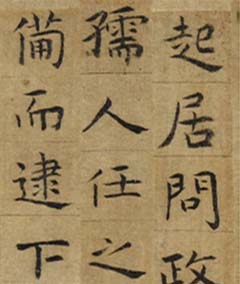 起居問政
孺人任之
備而逮下